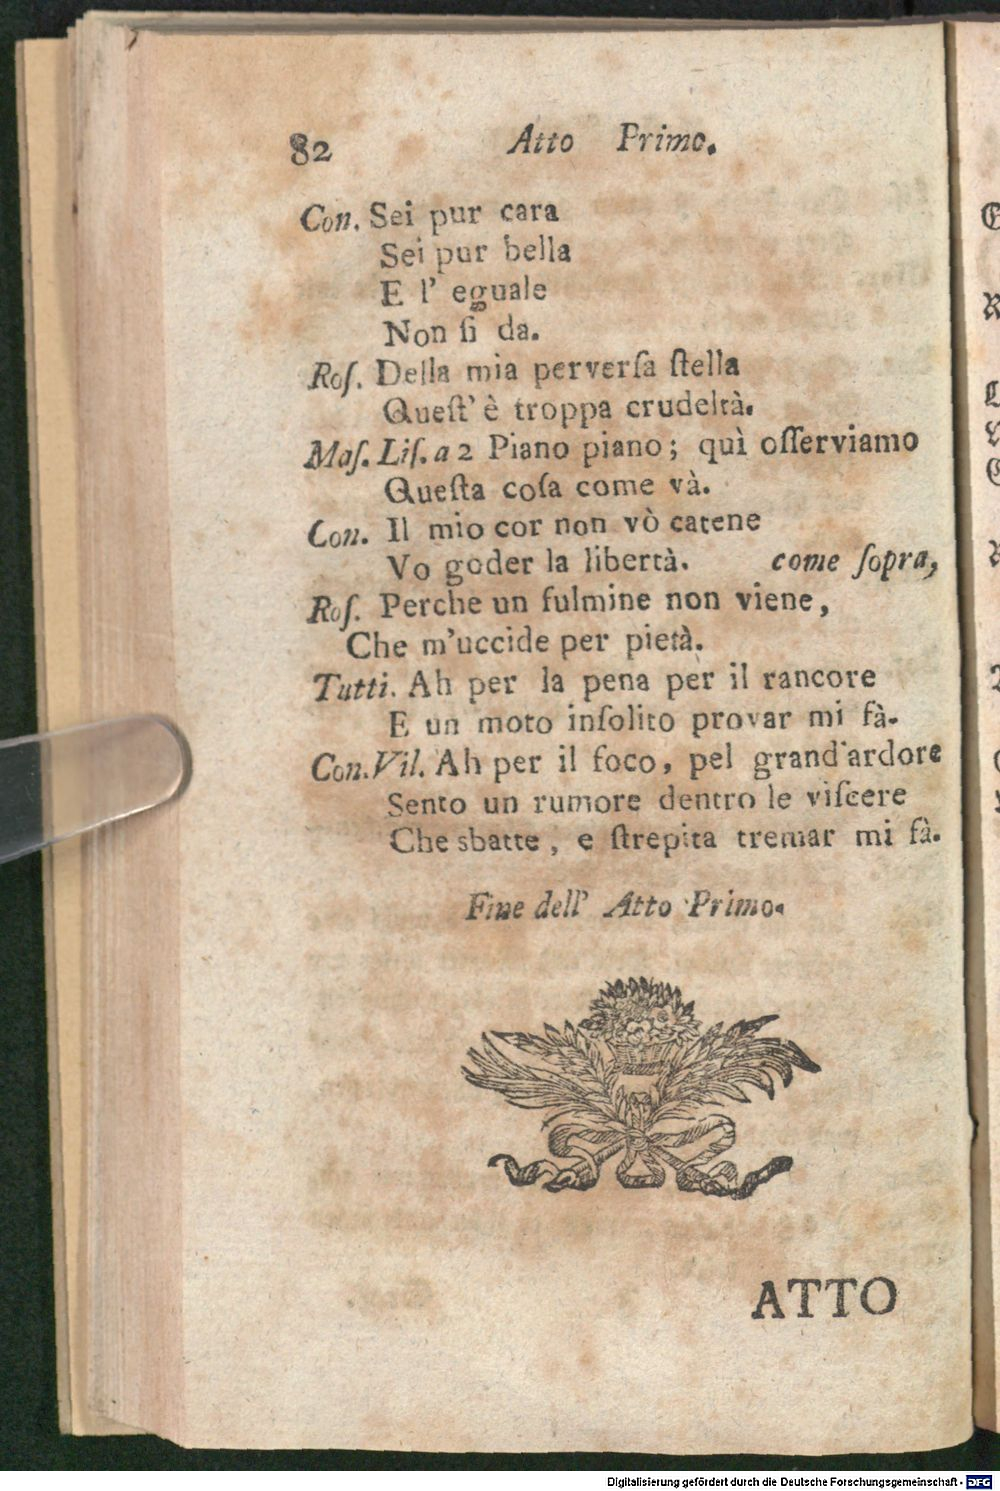 82 Atto Primo.
Con. Sei pur cara
Sei pur bella
E l' eguale
Non ſi da.
Roſ. Della mia perverſa ſtella
Queſt' è troppa crudeltà.
Maſ. Liſ. a 2 Piano piano; quì oſſerviamo
Queſta coſa come và.
Con. Il mio cor non vò catene
Vo goder la libertà. come ſopra,
Roſ. Perche un fulmine non viene,
Che m'uccide per pietà.
Tutti. Ah per la pena per il rancore
E un moto inſolito provar mi fà.
Con. Vil. Ah per il foco, pel grand'ardore
Sento un rumore dentro le viſcere
Che sbatte, e ſtrepita tremar mi fà.
Fine dell' Atto Primo.
ATTO
Digitalisierung gefördert durch die Deutsche Forschungsgemeinschaft - DFG